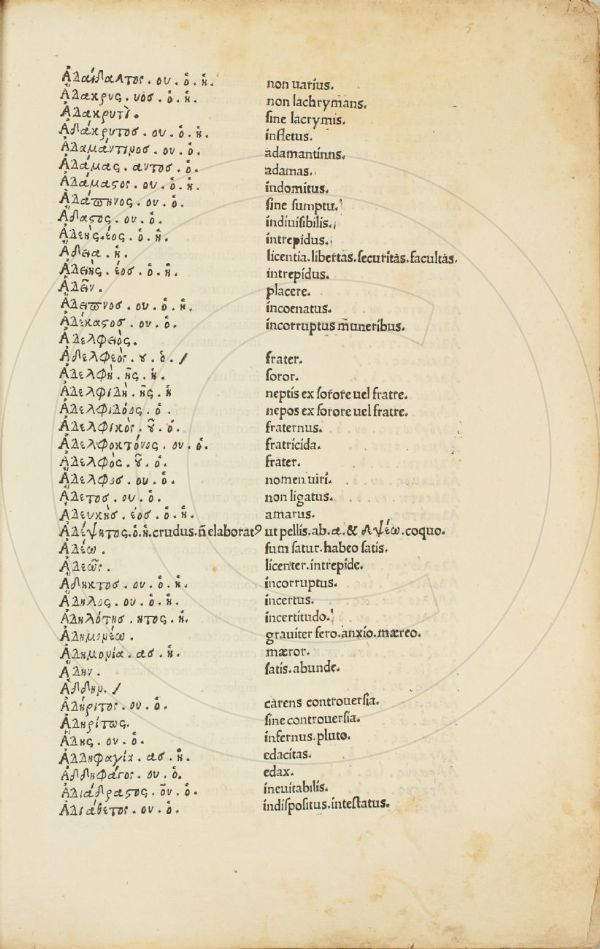 Ἀδαίδαλτος. ου. ὁ. ἡ. non uarius.
Ἄδακρυς. υος. ὁ. ἡ. non lachrymans.
Ἀδακρυτὶ. sine lacrymis.
Ἀδάκρυτος. ου. ὁ. ἡ. infletus.
Ἀδαμάντινος. ου. ὁ. adamantinns.
Ἀδάμας. αντος. ὁ. adamas.
Ἀδάμαςος. ου. ὁ. ἡ. indomitus.
Ἀδάπηνος. ου. ὁ. sine sumptu.
Ἄδαςος. ου. ὁ. indiuisibilis.
Ἀδεὴς. έος. ὁ. ἡ. intrepidus.
Ἄδεια. ἡ. licentia. libertas. securitas. facultas.
Ἀδεὴς. έος. ὁ. ἡ. intrepidus.
Ἀδεῖν. placere.
Ἄδειπνος. ου. ὁ. ἡ. incoenatus.
Ἀδέκαςος. ου. ὁ. incorruptus muneribus.
Ἀδελφειός.
Ἀδελφεός. ȣ. ὁ. / frater.
Ἀδελφὴ. ῆς. ἡ. soror.
Ἀδελφιδὴ. ῆς. ἡ neptis ex sorore uel fratre.
Ἀδελφιδόος. ὁ. nepos ex sorore uel fratre.
Ἀδελφικὸς. ȣ͂. ὁ. fraternus.
Ἀδελφοκτόνος. ου. ὁ. fratricida.
Ἀδελφὸς. ȣ͂. ὁ. frater.
Ἄδελφος. ου. ὁ. nomen uiri.
Ἄδετος. ου. ὁ. non ligatus.
Ἀδευκὴς. έος. ὁ. ἡ. amarus.
Ἀδέψητος. ὁ. ἡ. crudus. ñ elaboratꝰ ut pellis. ab. α. & δεψέω. coquo.
Ἀδέω. sum satur. habeo satis.
Ἀδεῶς. licenter. intrepide.
Ἄδηκτος. ου. ὁ. ἡ. incorruptus.
Ἄδηλος. ου. ὁ. ἡ. incertus.
Ἀδηλότης. ητος. ἡ. incertitudo.
Ἀδημονέω. grauiter fero. anxio. mæreo.
Ἀδημονία. ας. ἡ. mæror.
Ἄδην. satis. abunde.
Ἄδδην. /
Ἀδήριτος. ου. ὁ. carens controuersia.
Ἀδηρίτως. sine controuersia.
Ἄδης. ου. ὁ. infernus. pluto.
Ἀδδηφαγία. ας. ἡ. edacitas.
Ἀδδηφάγος. ου. ὁ. edax.
Ἀδιάδραςος. ου. ὁ. ineuitabilis.
Ἀδιάθετος. ου. ὁ. indispositus. intestatus.